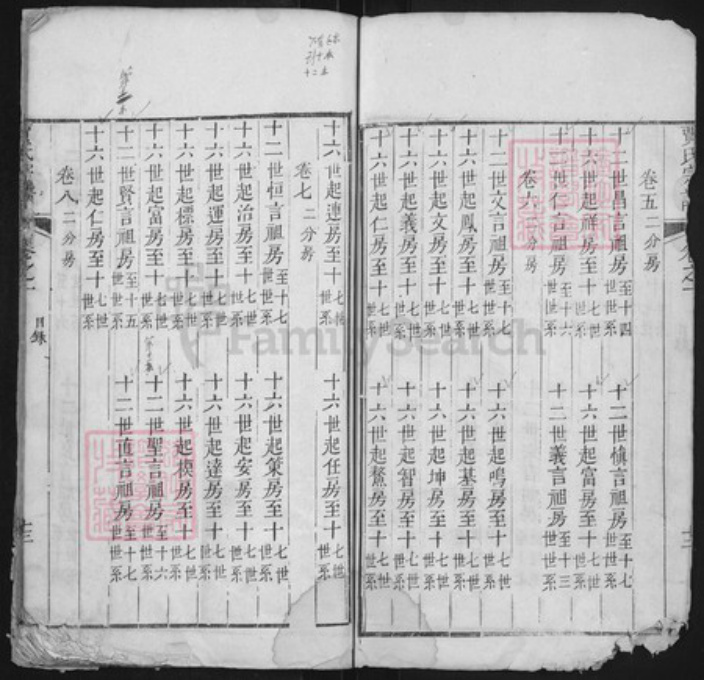 卷五 二分房
十二世昌言祖房至十四世世系
十二世慎言祖房至十七世世系
十六世起祥房至十七世世系
十六世起富房至十七世世系
十二世仁言祖房至十六世世系
十二世義言祖房至十三世世系
卷六 二分房
十二世文言祖房至十七世世系
十六世起鳴房至十七世世系
十六世起鳳房至十七世世系
十六世起基房至十七世世系
十六世起文房至十七世世系
十六世起坤房至十七世世系
十六世起義房至十七世世系
十六世起智房至十七世世系
十六世起仁房至十七世世系
十六世起鰲房至十七世世系
十六世起連房至十七世世系
十六世起任房至十七世世系
卷七 二分房
十二世恒言祖房至十七世世系
十六世起策房至十七世世系
十六世起治房至十七世世系
十六世起安房至十七世世系
十六世起運房至十七世世系
十六世起達房至十七世世系
十六世起標房至十七世世系
十六世起模房至十七世世系
十六世起富房至十七世世系
十二世聖言祖房至十六世世系
十二世賢言祖房至十五世世系
十二世直言祖房至十七世世系
十六世起仁房至十七世世系
卷八 二分房
目錄
十三
FamilySearch